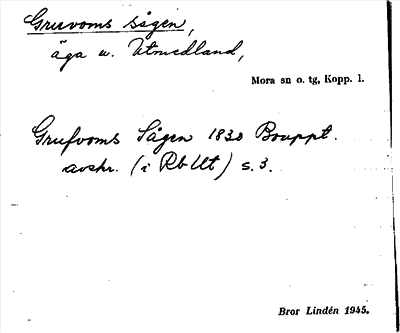 Gruvoms sågen,
äga u. Utmedland,
Mora sn o. tg, Kopp. l.
Grufvoms Sågen 1830 Bouppt.
avskr. (i Rb Ut) s. 3.
Bror Lindén 1945.